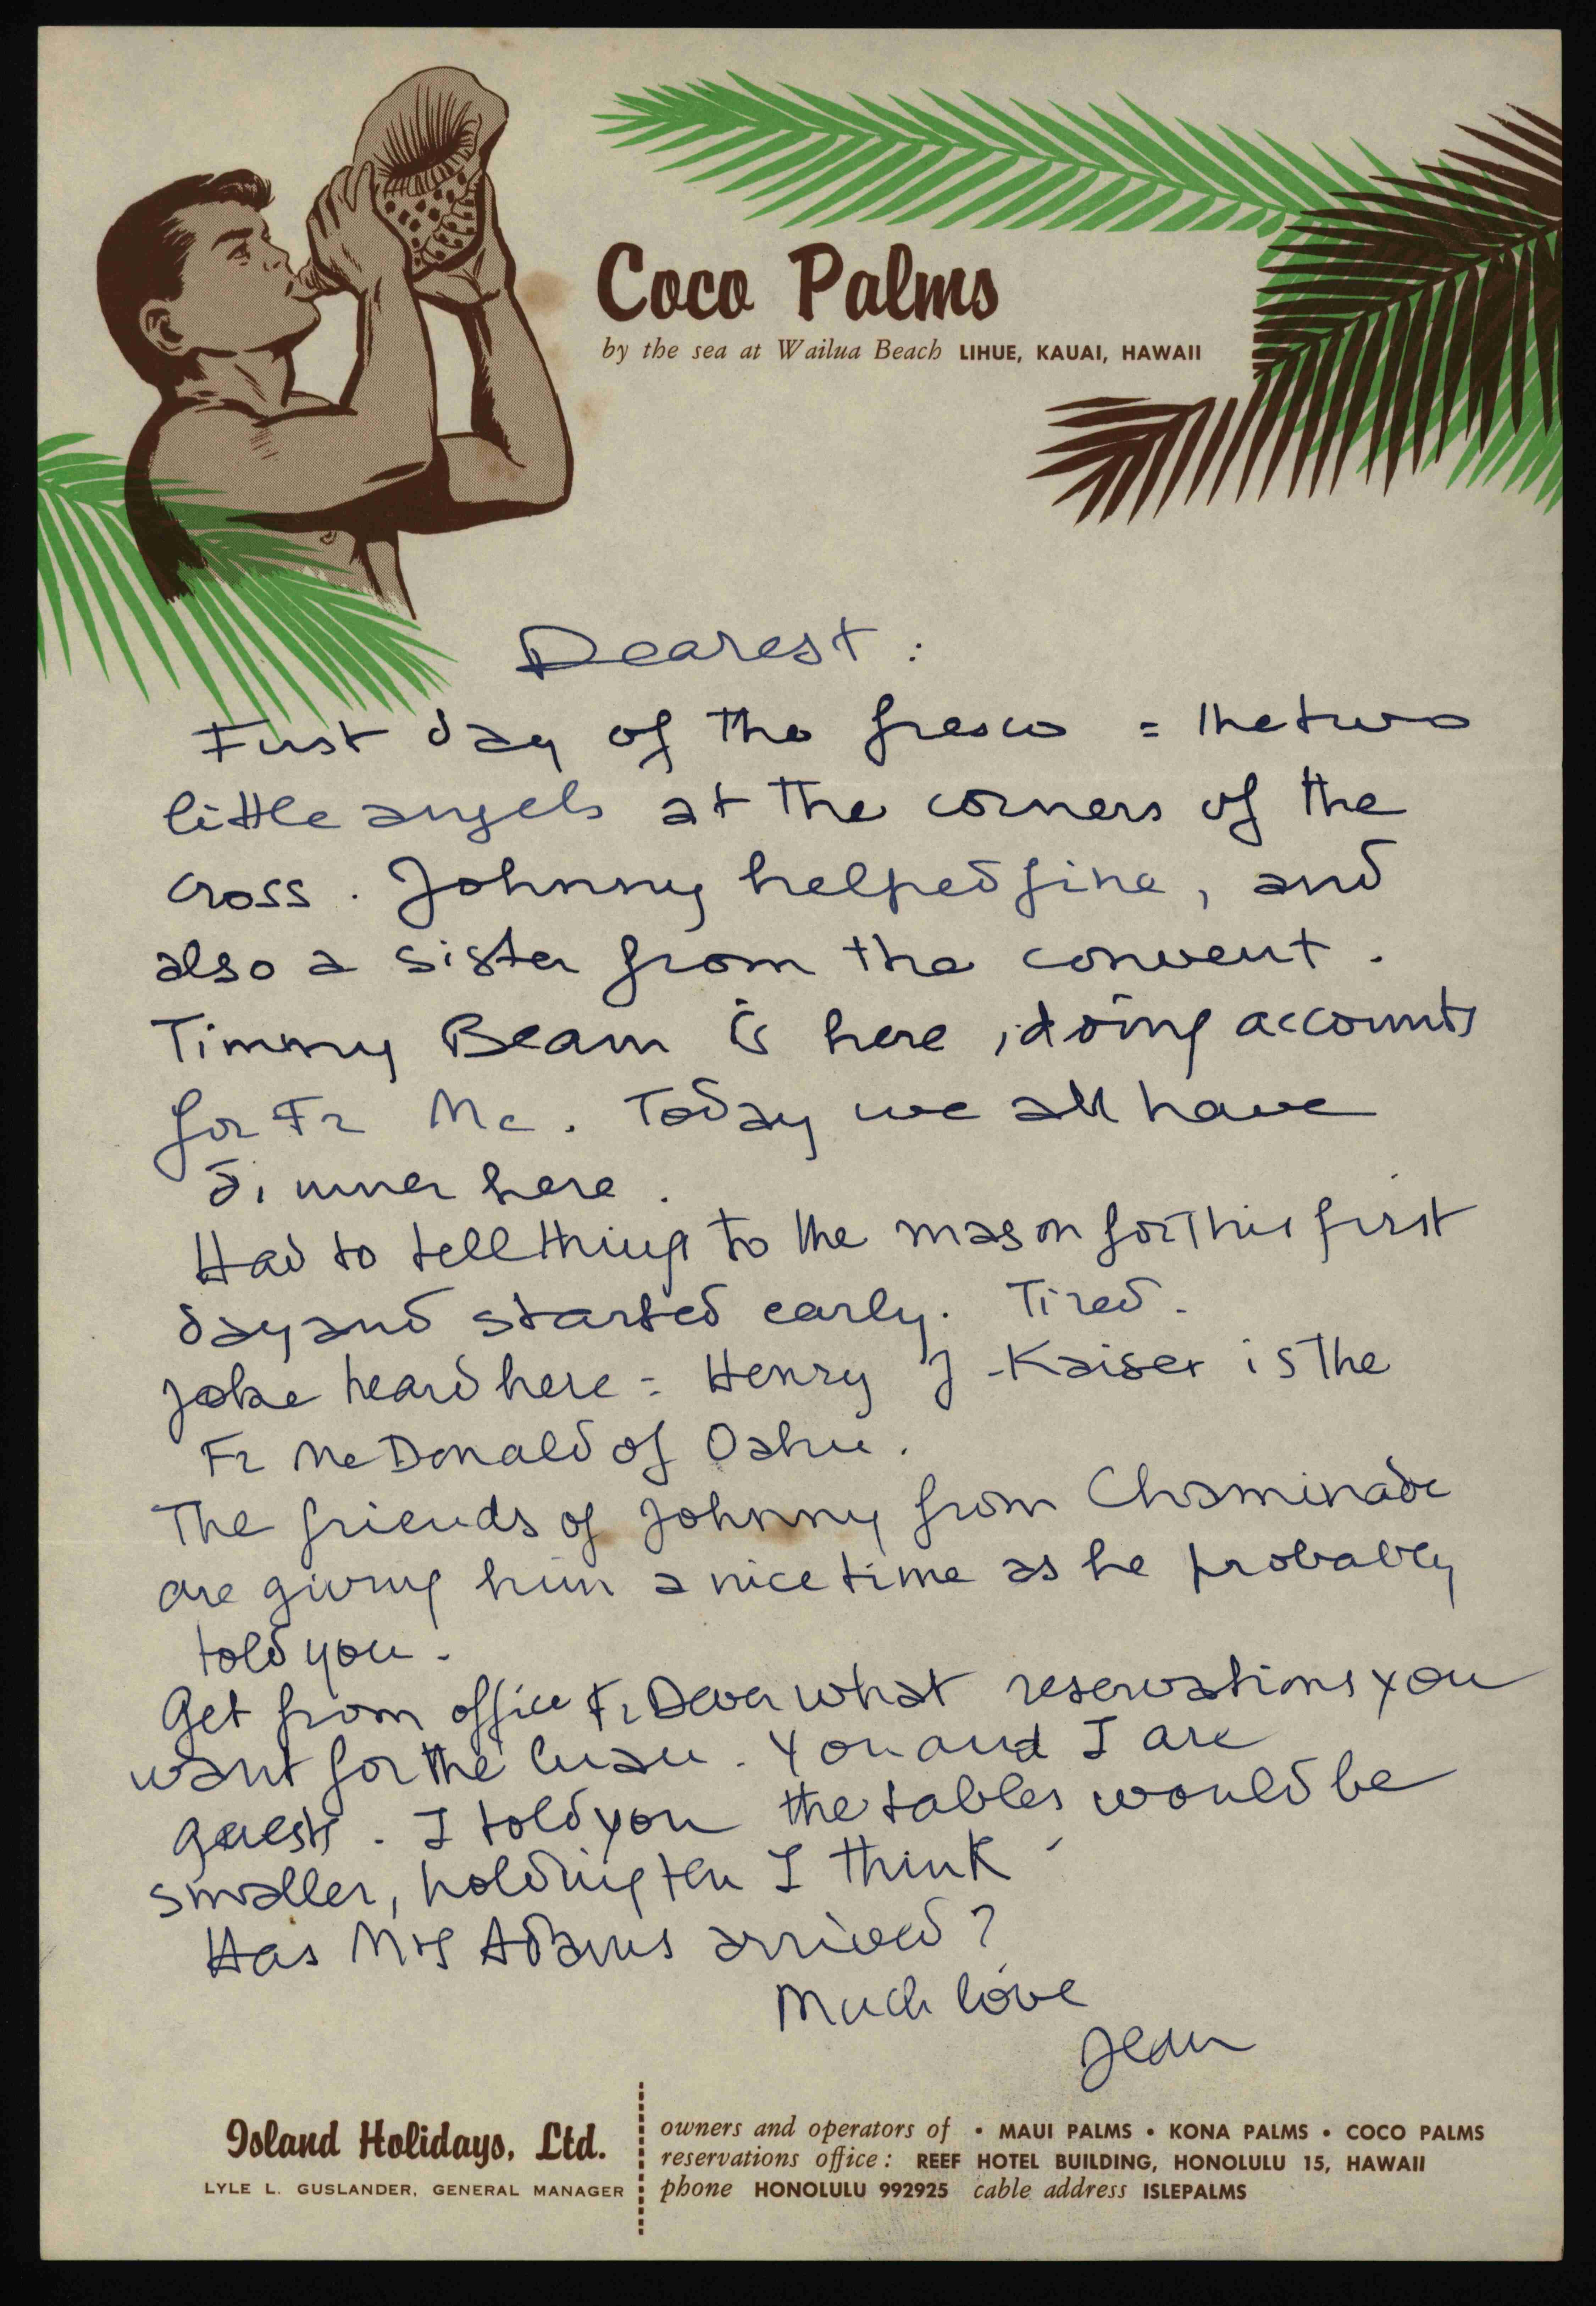 Coco Palms
by the sea at Wailua Beach LIHUE, KAUAI, HAWAII
Dearest :
First day of the fresco = the two
little angels at the corners of the
cross . Johnny helped fine , and
also a sister from the convent .
Timmy Beam is here , doing accounts
for Fr Mc . Today we all have
dinner here .
Had to tell things to the mason for this first
day and started early . Tired .
Joke heard here = Henry J - Kaiser is the
Fr McDonald of Oahu .
The friends of Johnny from Chaminade
are giving him a nice time as he probably
told you .
Get from office Fr Dever what reservations you
want for the luau . You and I are
guests . I told you the tables would be
smaller , holding ten I think -
Has Mrs Adams arrived ?
Much love
Jean
Island Holidays, Ltd.
LYLE L. GUSLANDER, GENERAL MANAGER
owners and operators of • MAUI PALMS • KONA PALMS • COCO PALMS
reservations office : REEF HOTEL BUILDING, HONOLULU 15, HAWAII
phone HONOLULU 992925 cable address ISLEPALMS